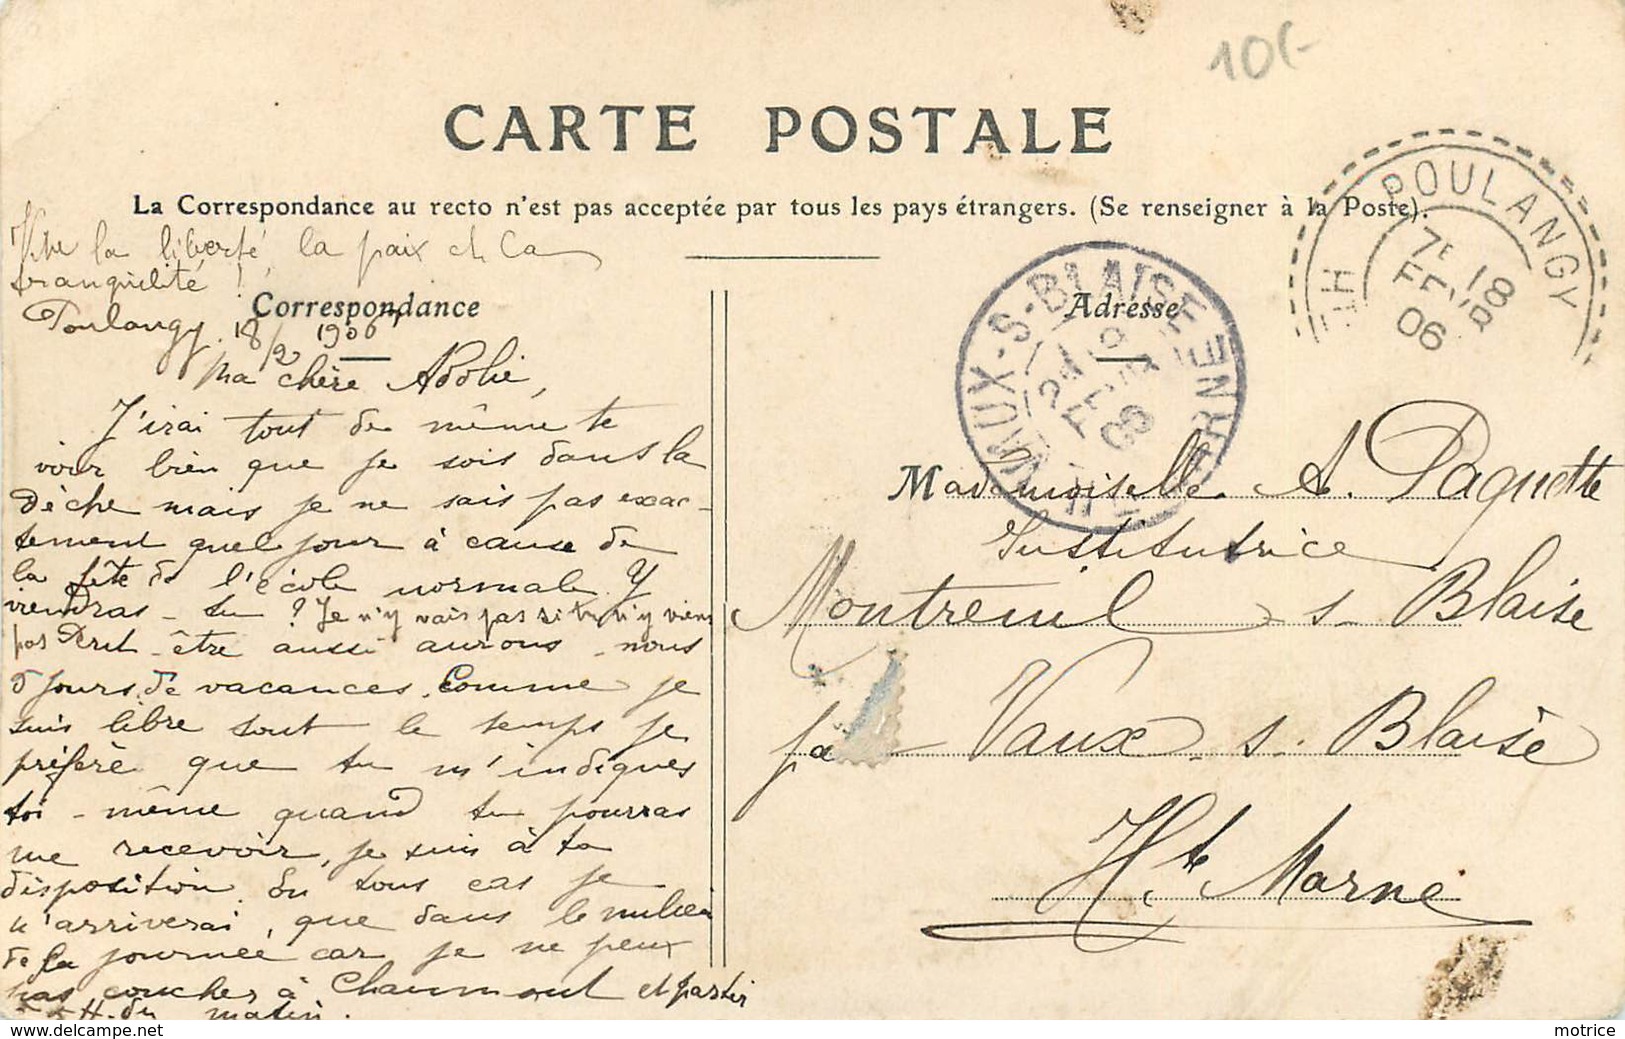 10f-
CARTE POSTALE
La Correspondance au recto n'est pas acceptée par tous les pays étrangers. (Se renseigner à la Poste).
Vive la liberté, la paix et la
tranquilité !
Correspondance
Poulangy 18/2 1906
Ma chère Adolie,
J'irai tout de même te
voir bien que je sois dans la
dèche mais je ne sais pas exac-
tement quel jour à cause de
la fête de l'école normale. Y
viendras-tu ? Je n'y vais pas si tu n'y viens
pas Peut-être aussi aurons-nous
jours de vacances. Comme je
suis libre tout le temps je
préfère que tu m'indiques
toi-même quand tu pourras
me recevoir, je suis à ta
disposition. En tous cas je
n'arriverai, que dans le milieu
de la journée car je ne peux
pas coucher à Chaumont et partir
H. du matin.
POULANGY
HTE
7E 18
FEVR
06
VAUX-S-BLAISE
HTE MARNE
FEVR
06
Adresse
Mademoiselle A. Paquette
Institutrice
Montreuil s-Blaise
par Vaux-s-Blaise
Hte Marne
motrice